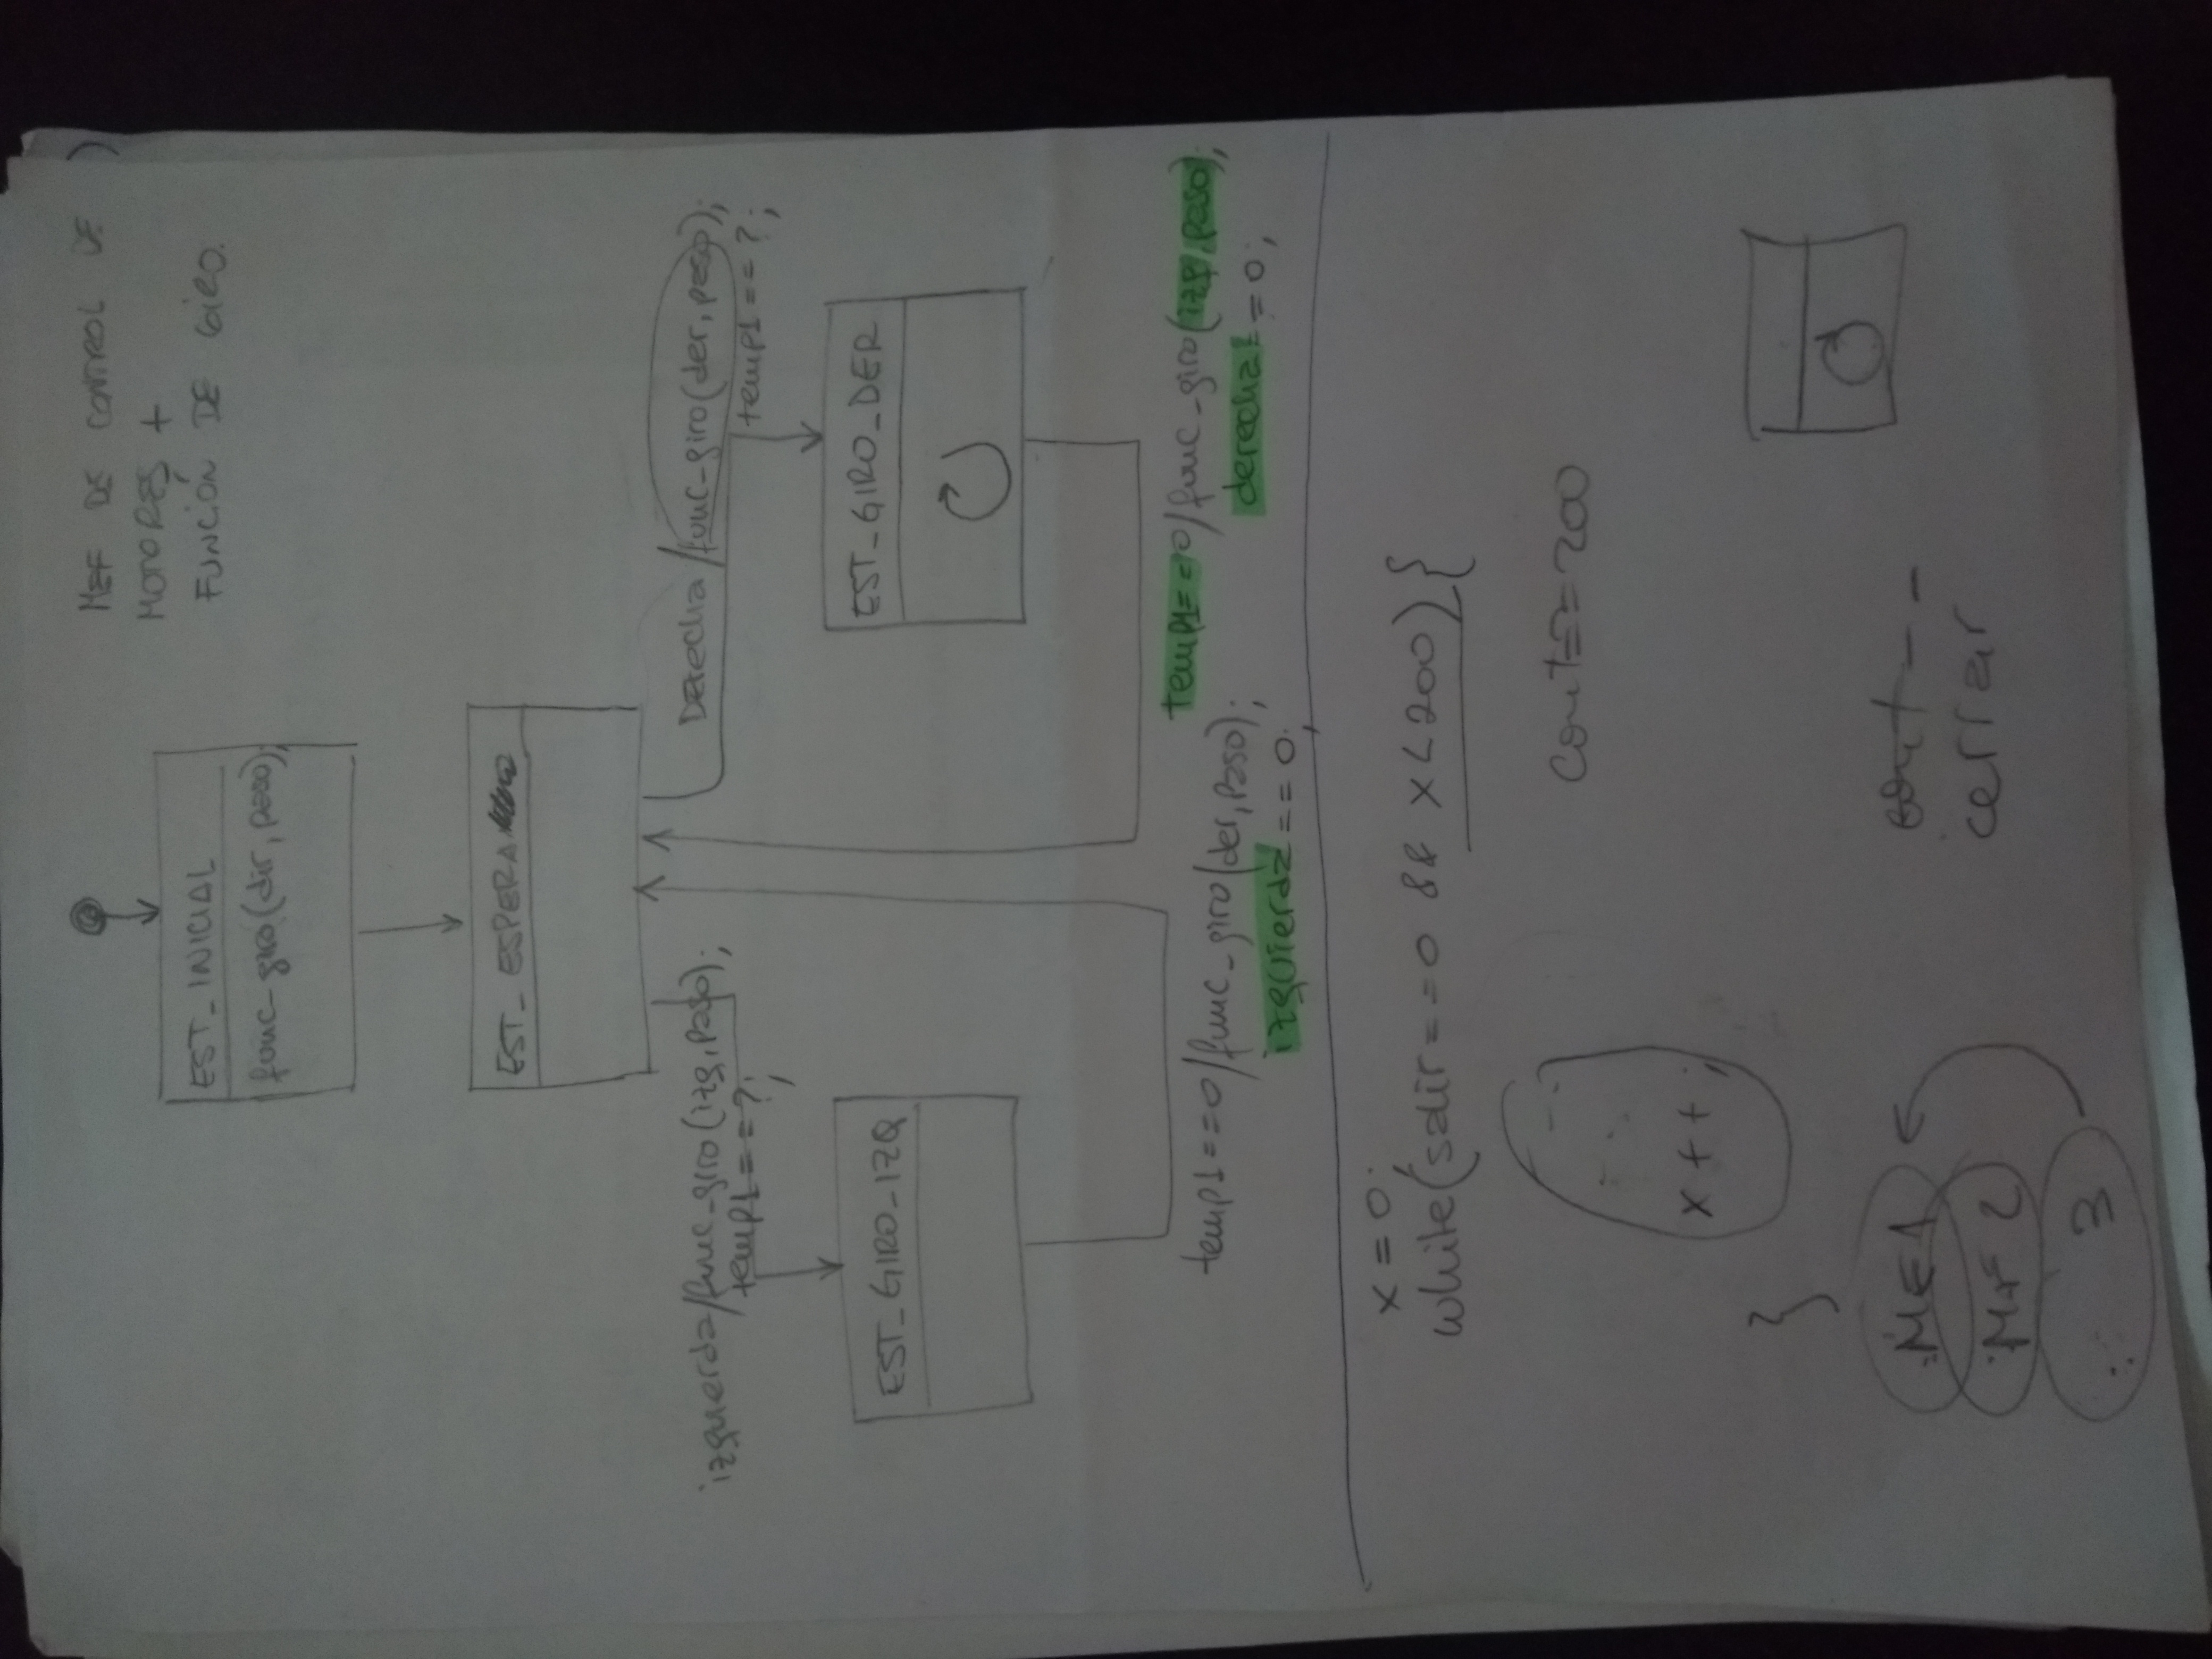 MEF DE CONTROL DE
MOTORES +
FUNCIÓN DE GIRO.
EST_INICIAL
func_giro(dir, paso);
EST_ESPERA
izquierda/func_giro(izq, paso);
temp1==?;
Derecha/func_giro(der, paso);
temp1==?;
EST_GIRO_IZQ
EST_GIRO_DER
temp1==0/func_giro(der, paso);
izquierda==0;
temp1==0/func_giro(izq, paso);
derecha==0;
x=0;
while(salir==0 && x<200){
cont==200
x++;
}
ME1
cont--
MF2
cerrar
3